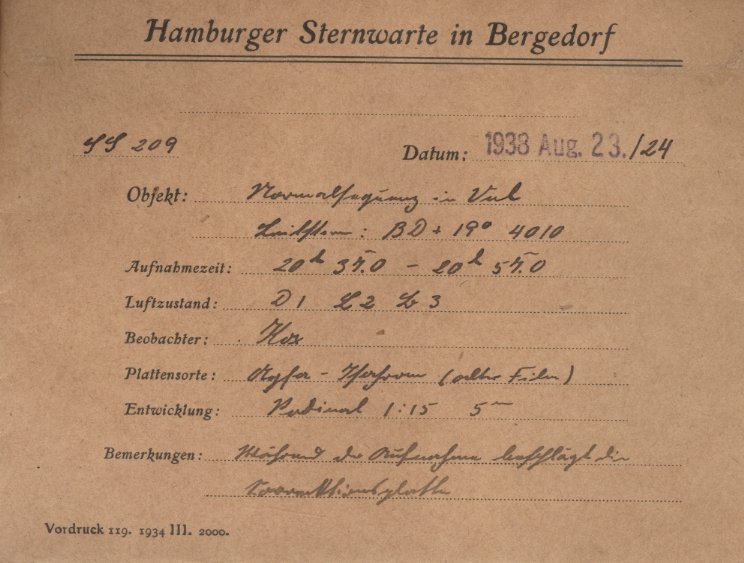 Hamburger Sternwarte in Bergedorf
SS 209 Datum: 1938 Aug. 23./24
Objekt: Normalsequenz in Vul
Leitstern: BD + 19° 4010
Aufnahmezeit: 20h 35.0 - 20h 55.0
Luftzustand: D 1 L 2 3
Beobachter:
Plattensorte: Agfa - (alter Film)
Entwicklung: Rodinal 1:15 5m
Bemerkungen: Während der Aufnahme beschlägt die
Korrektionsplatte
Vordruck 119. 1934 III. 2000.